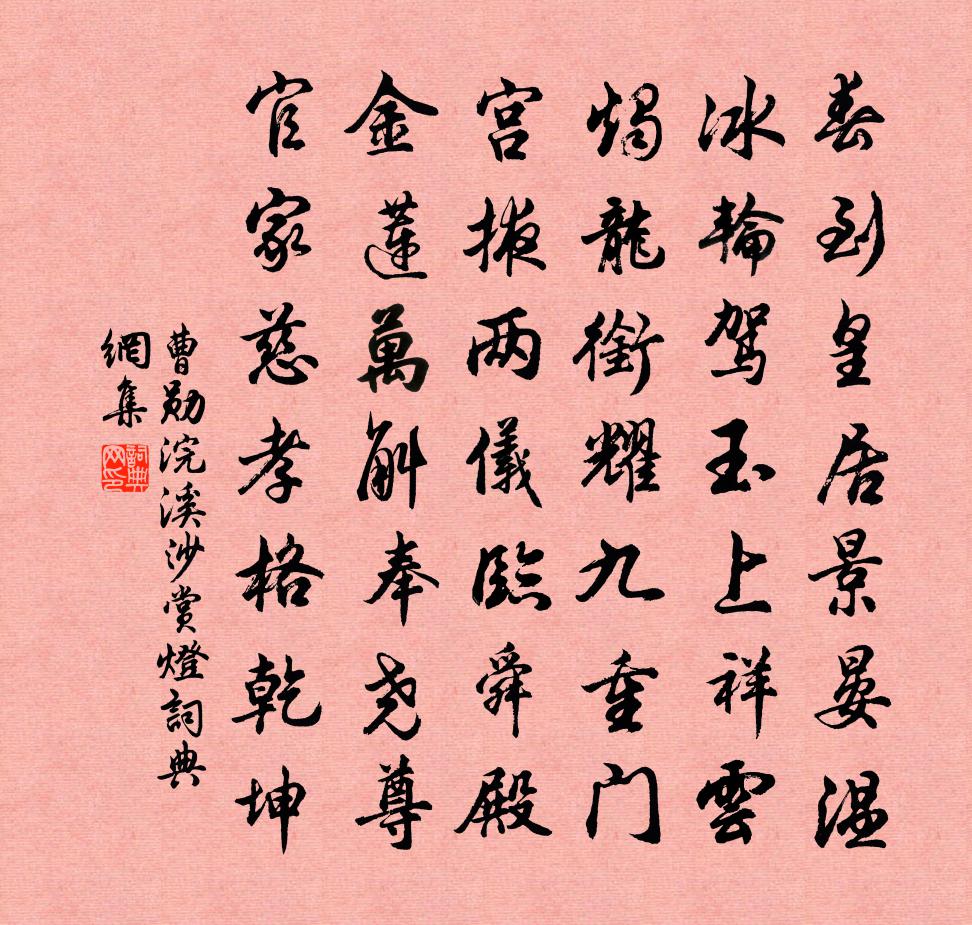 春到皇居景晏温
冰輪駕玉上祥雲
燭龍銜耀九重门
宫掖两儀臨舜殿
金蓮萬斛奉尧尊
官家慈孝格乾坤
曹勛浣溪沙赏燈詞典
網集
詞典
网印